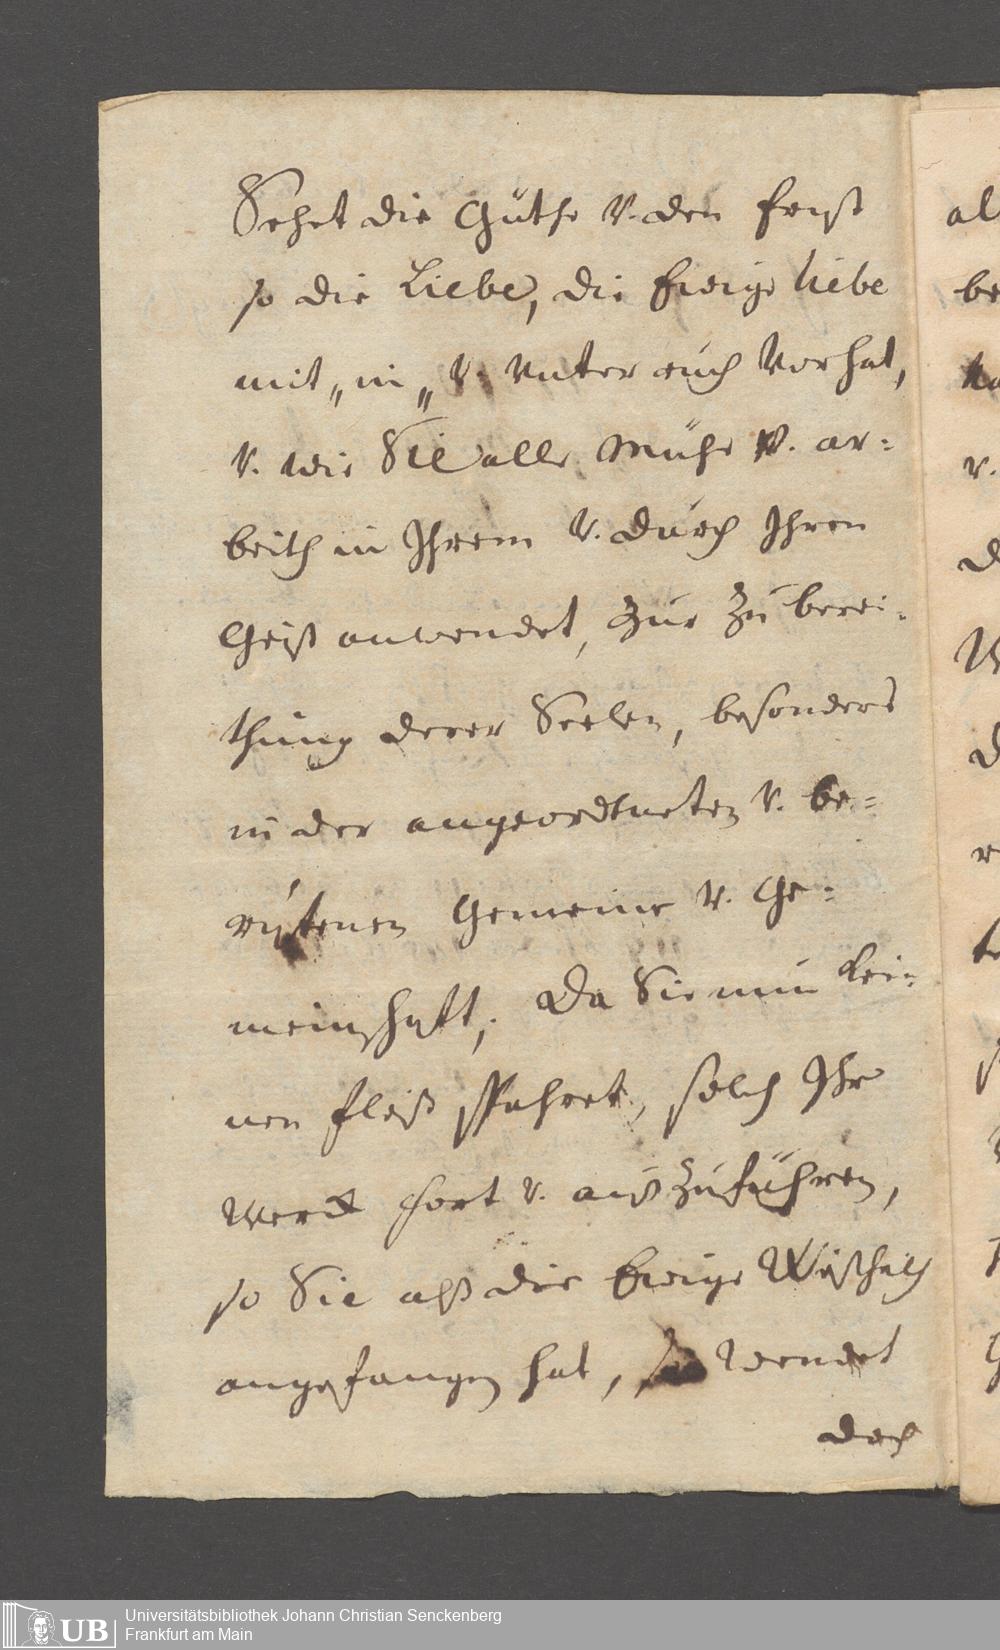 Sehet die Güthe v. den Ernst
so die Liebe, die Ewige liebe
mit, in, v. Vnter euch Vorhat,
v. wie Sie alle Mühe v. ar=
beith in Ihrem v. durch Ihren
Geist anwendet, Zur Zuberei=
thung derer Seelen, besonders
in der angeordtneten v. be=
ruffenen Gemeine v. Ge=
meinschafft, Da Sie nun kei=
nen fleiß spahret, solch Ihr
Werck fort v. auß Zuführen,
so Sie alß die Ewige Weißheit
angefangen hat, so wendet
doch
al
be
v.
te
UB Universitätsbibliothek Johann Christian Senckenberg
Frankfurt am Main